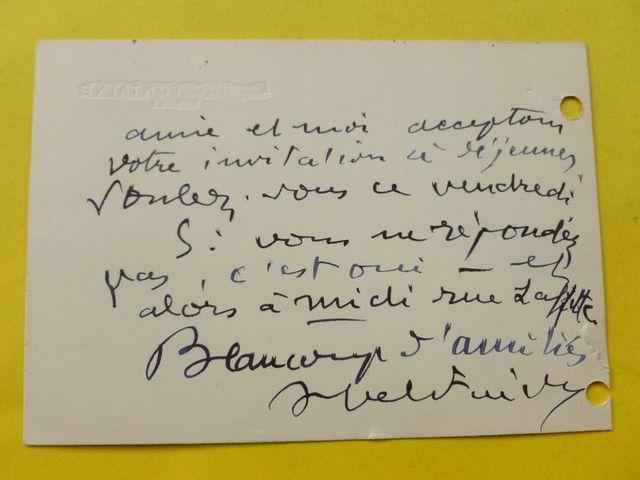 annie et moi acceptons
votre invitation à déjeuner
Voulez-vous ce vendredi
Si vous ne répondez
pas, c'est oui — et
alors à midi rue Laffitte
Beaucoup d'amitiés